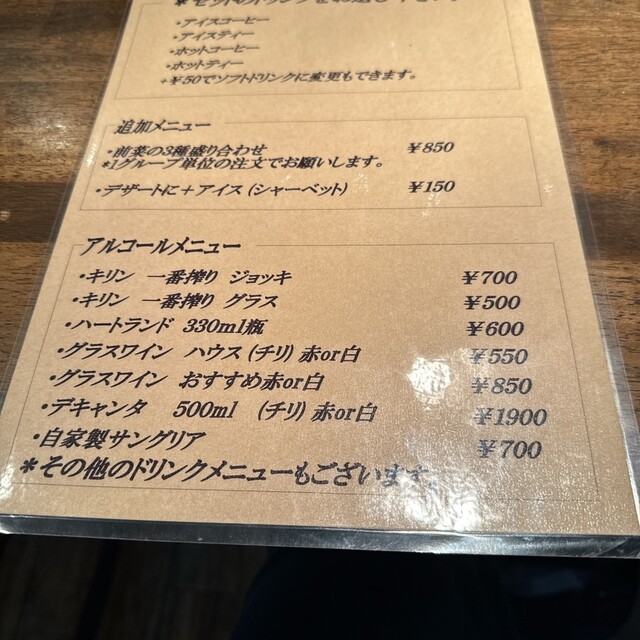 ・アイスコーヒー
・アイスティー
・ホットコーヒー
・ホットティー
+¥50でソフトドリンクに変更もできます。
追加メニュー
・前菜の3種盛り合わせ ¥850
*1グループ単位の注文でお願いします。
・デザートに+アイス(シャーベット) ¥150
アルコールメニュー
・キリン 一番搾り ジョッキ ¥700
・キリン 一番搾り グラス ¥500
・ハートランド 330ml瓶 ¥600
・グラスワイン ハウス(チリ)赤or白 ¥550
・グラスワイン おすすめ赤or白 ¥850
・デキャンタ 500ml (チリ)赤or白 ¥1900
・自家製サングリア ¥700
*その他のドリンクメニューもございます。